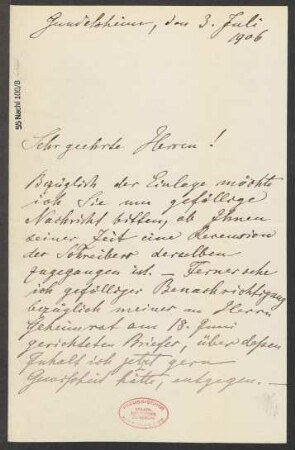 Gundelsheim, den 3. Juli
1906
Sehr geehrte Herren!
Bezüglich der Einlage möchte
ich Sie um gefällige
Nachricht bitten, ob Ihnen
seiner Zeit eine Recension
der Schreibers derselben
zugegangen ist. — Ferner sehe
ich gefälliger Benachrichtigung
bezüglich meiner an Herrn
Geheimrat am 18. Juni
gerichteten Briefes, über dessen
Inhalt ich jetzt gern
hätte, entgegen. —
55 Nachl 100/B